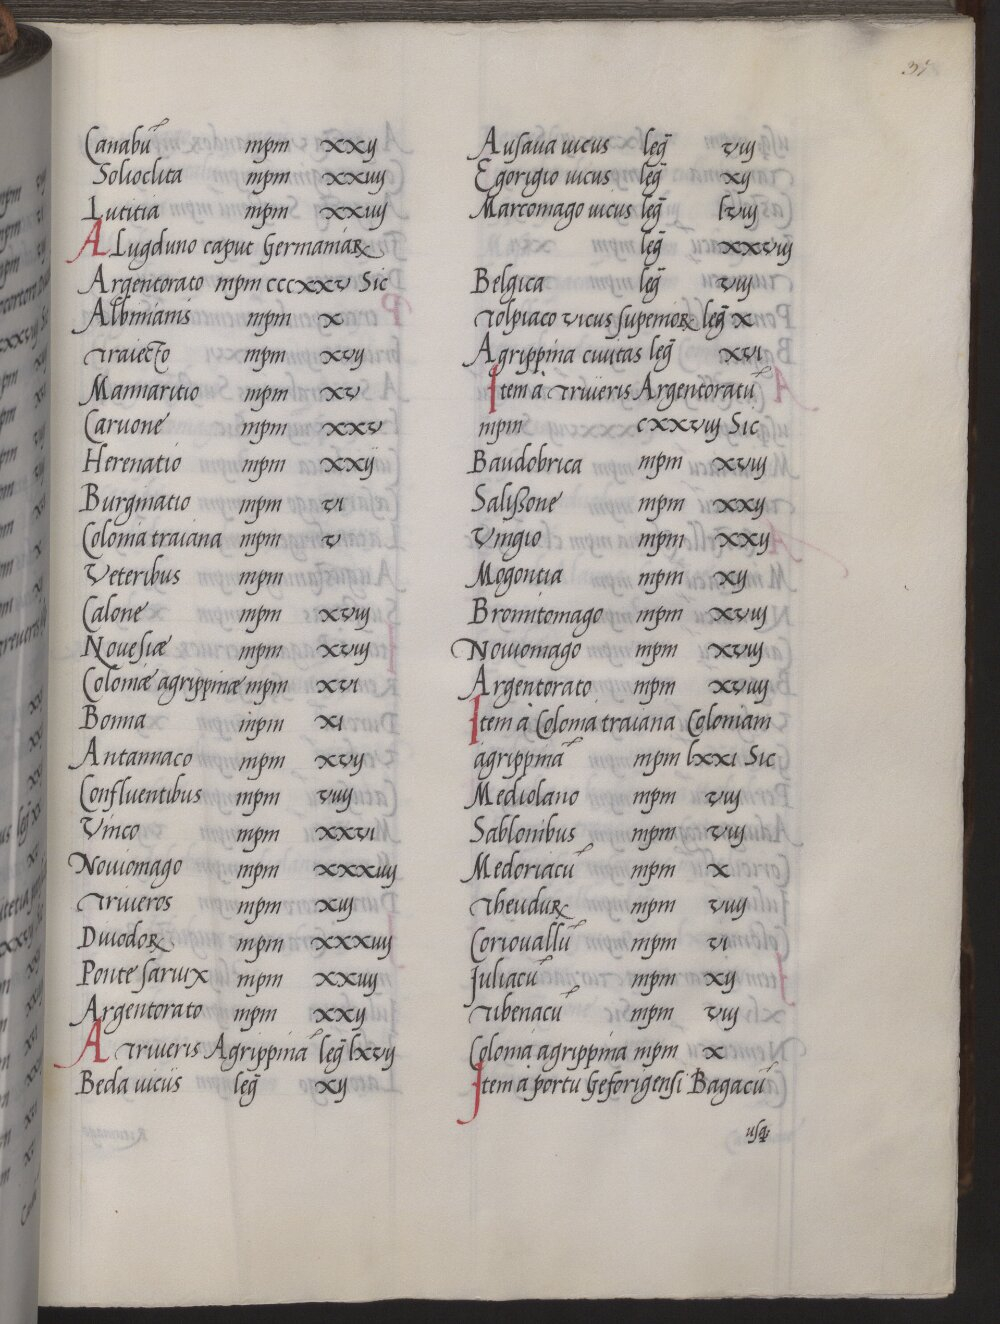 37
Canabū mpm xxij
Solioclita mpm xxiiij
Lutitia mpm xxiiij
A Lugduno caput Germaniaꝝ
Argentorato mpm cccxxv Sic
Albinianis mpm x
Traiecto mpm xvij
Mannaritio mpm xv
Caruone mpm xxv
Herenatio mpm xxij
Burginatio mpm vi
Colonia traiana mpm v
Veteribus mpm
Calone mpm xviij
Novesiæ mpm xviij
Coloniæ agrippinæ mpm xvi
Bonna mpm xi
Antannaco mpm xvij
Confluentibus mpm viiij
Vinco mpm xxvi
Noviomago mpm xxxiiij
Triveros mpm xiij
Divodoꝝ mpm xxxiiij
Ponte sarvix mpm xxiiij
Argentorato mpm xxij
A Triveris Agrippinā leg̃ lxvij
Beda vicus leg̃ xij
Ausava vicus leg̃ viij
Egorigio vicus leg̃ xij
Marcomago vicus leg̃ lviij
leg̃ xxviij
Belgica leg̃ viij
Tolpiaco vicus supernoꝝ leg̃ x
Agrippina civitas leg̃ xvi
Item à Triveris Argentoratū
mpm cxxviij Sic
Baudobrica mpm xviij
Salissone mpm xxij
Vingio mpm xxij
Mogontia mpm xij
Bromitomago mpm xviij
Noviomago mpm xviij
Argentorato mpm xviiij
Item à Colonia traiana Coloniam
agrippinā mpm lxxi Sic
Mediolano mpm viij
Sablonibus mpm viij
Medoriacū mpm x
Theuduꝝ mpm viiij
Coriovallū mpm vi
Juliacū mpm xij
Tibenacū mpm viij
Colonia agrippina mpm x
Item à portu Gesorigensi Bagacū
usqꝫ